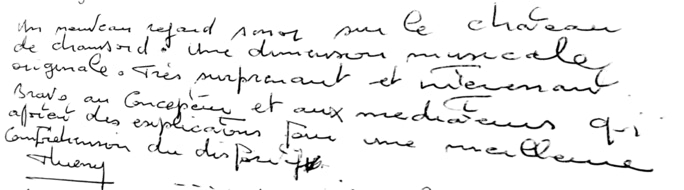 Un nouveau regard sonor sur le château
de chambord. Une dimension musicale
originale. Très surprenant et intéressant.
Bravo au Concepteur et aux mediateurs qui
des explications pour une meilleure
Compréhension du dispositif
Thierry